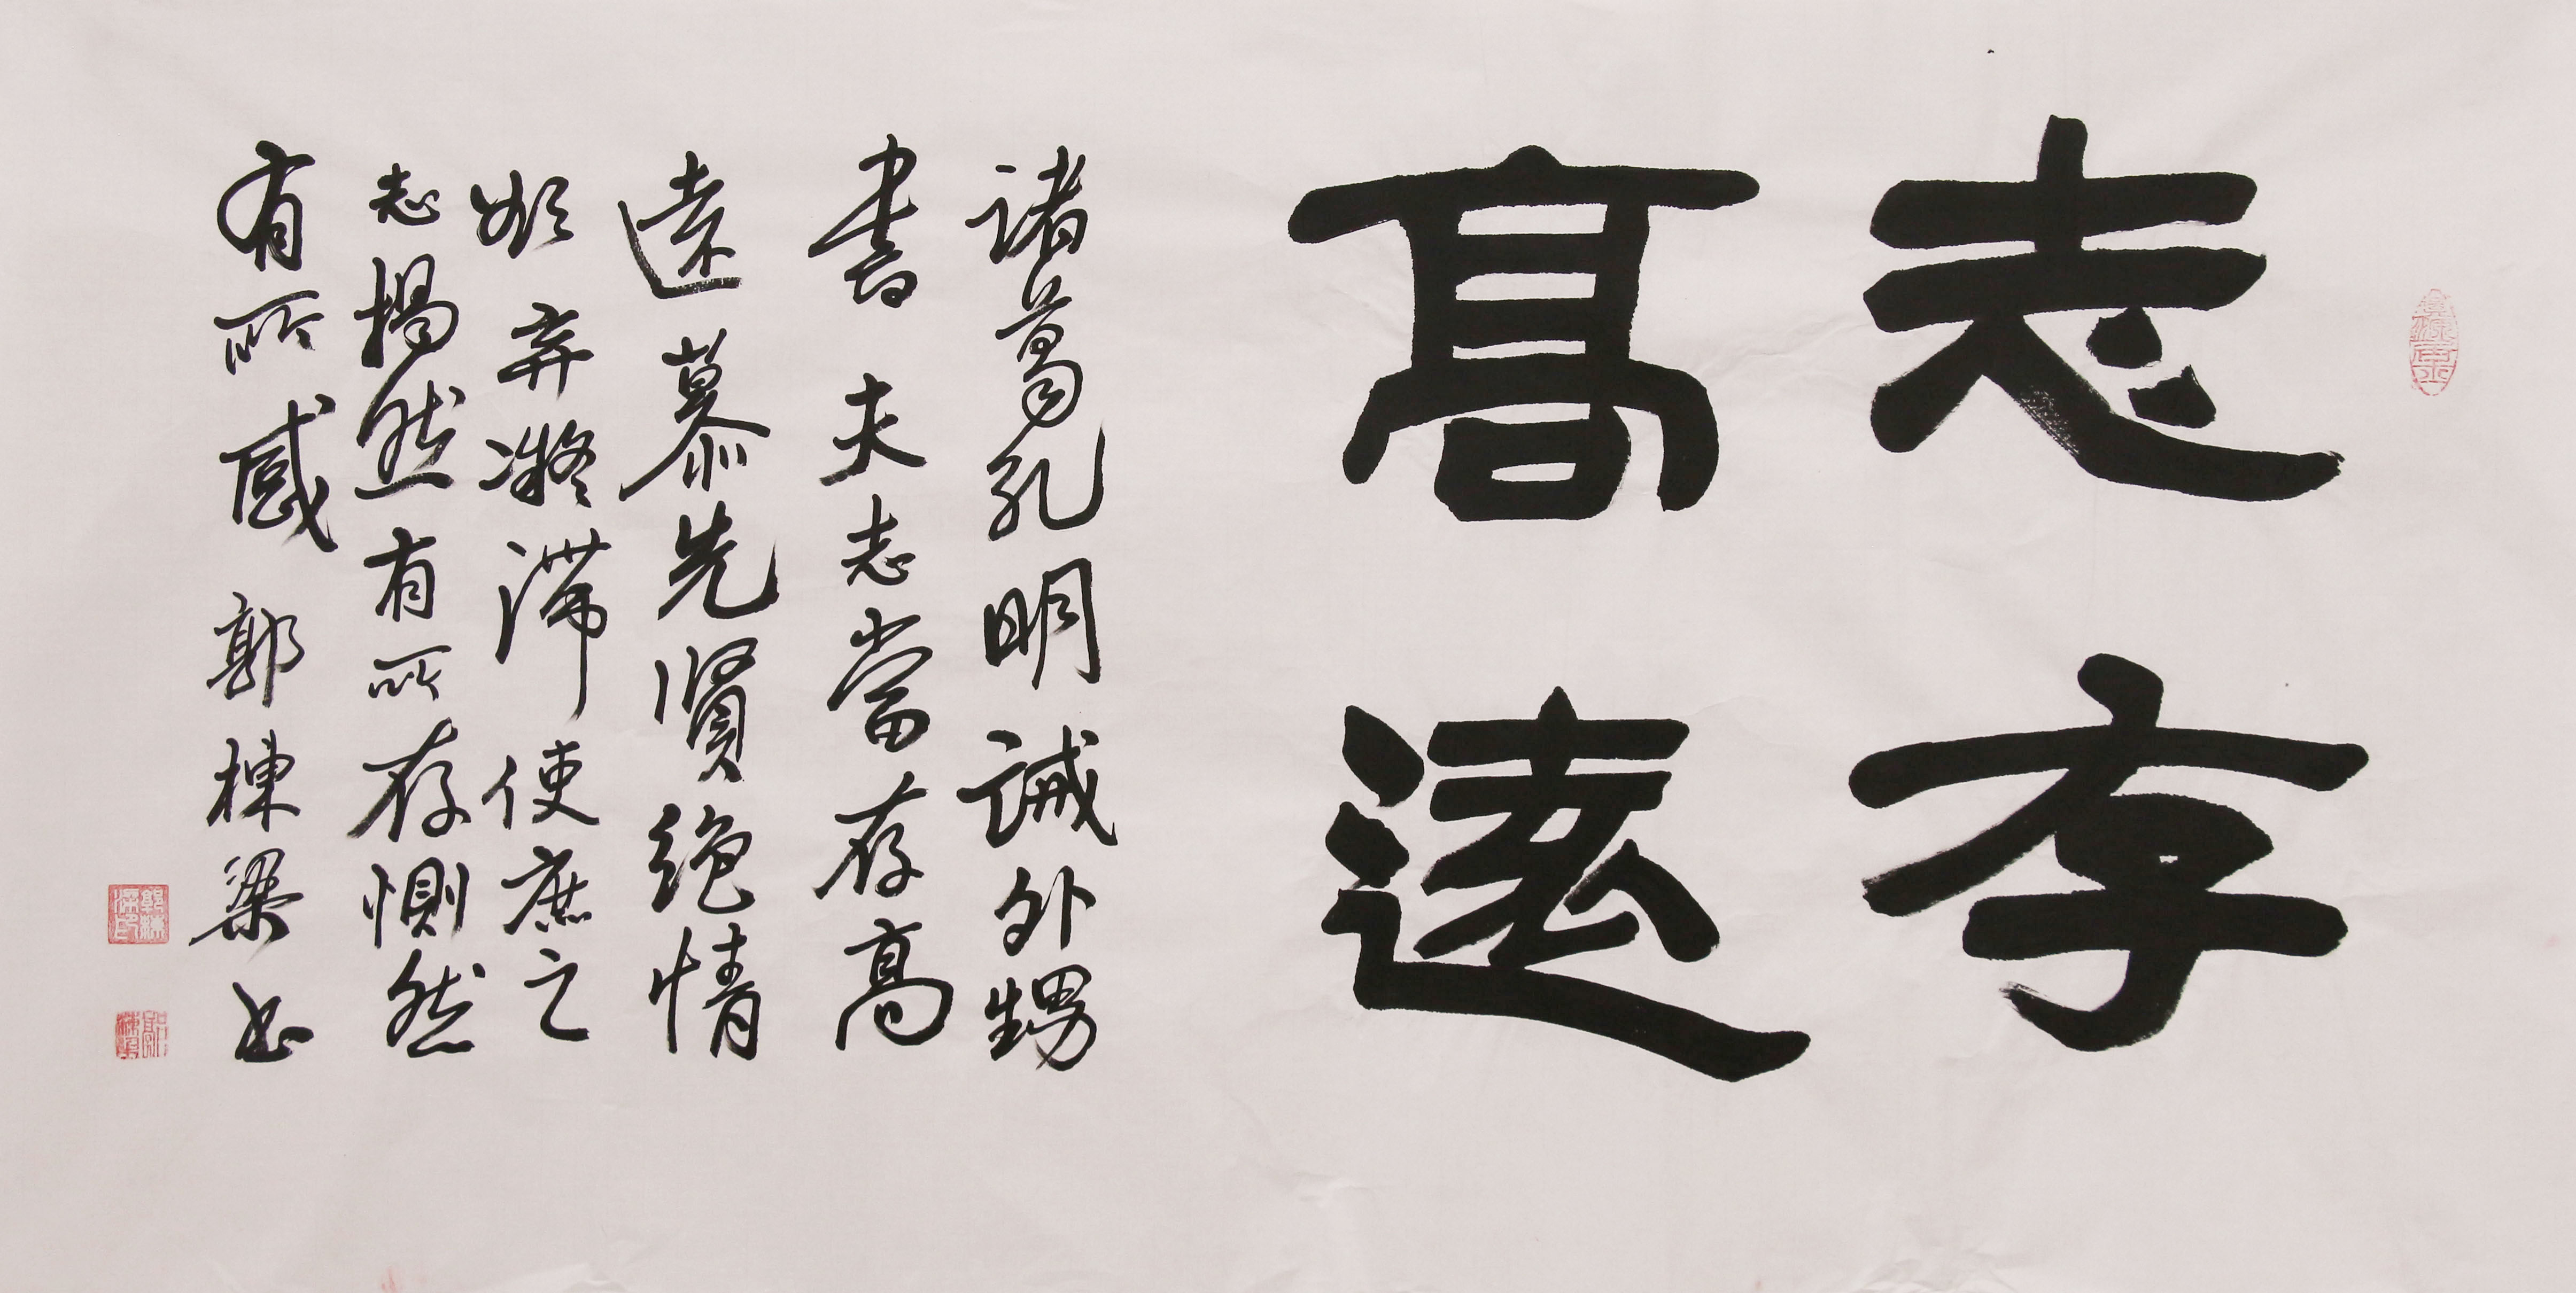 志存
高遠
諸葛孔明誡外甥
書 夫志當存高
遠慕先賢絶情
欲弃凝滞使庶之
志揭然有所存惻然
有所感 郭棟梁书